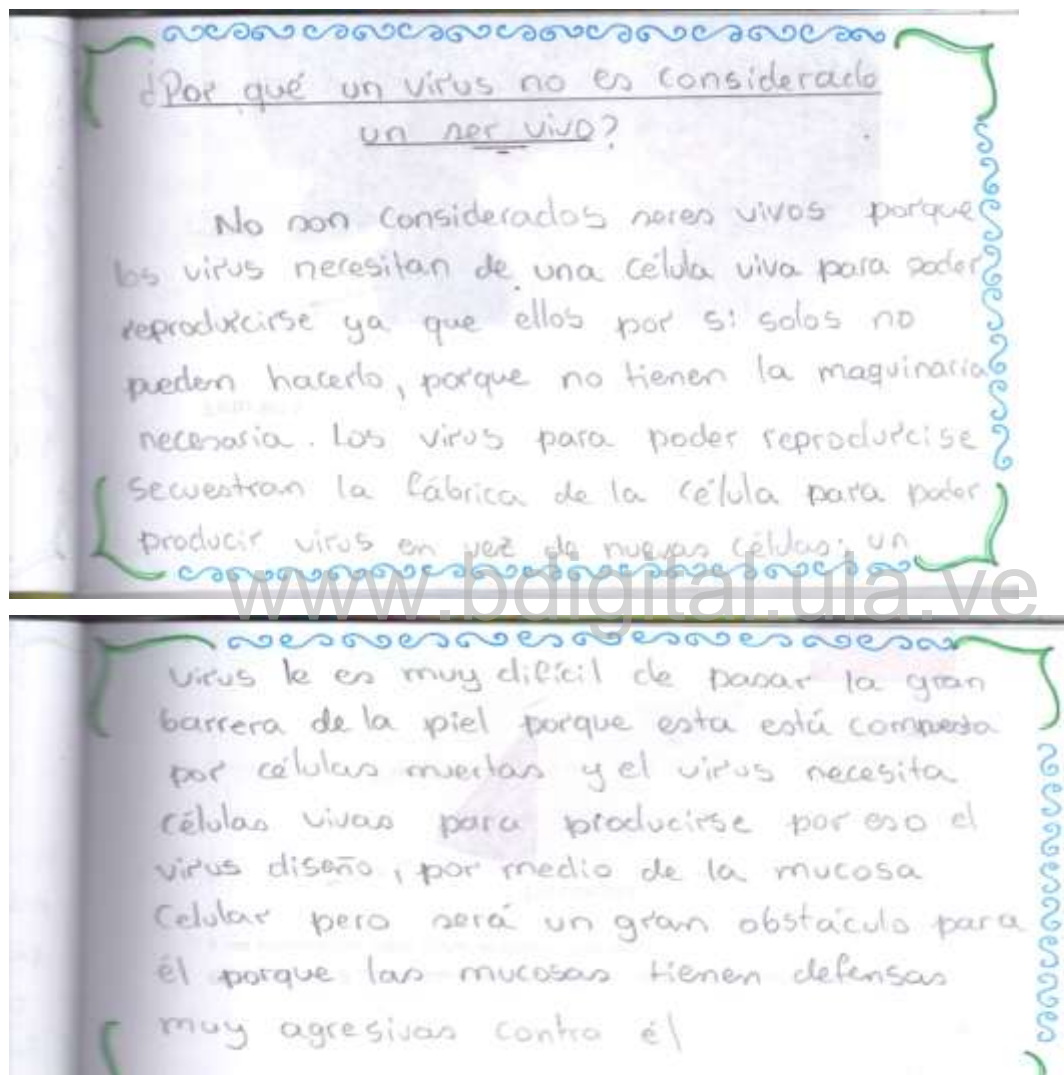 ¿Por qué un virus no es considerado
un ser vivo?
No son considerados seres vivos porque
los virus necesitan de una célula viva para poder
reproducirse ya que ellos por si solos no
pueden hacerlo, porque no tienen la maquinaria
necesaria. Los virus para poder reproducirse
secuestran la fábrica de la célula para poder
producir virus en vez de nuevas células; un
www.bdigital.ula.ve
virus le es muy difícil de pasar la gran
barrera de la piel porque esta está compuesta
por células muertas y el virus necesita
células vivas para producirse por eso el
virus diseño, por medio de la mucosa
Celular pero será un gran obstáculo para
él porque las mucosas tienen defensas
muy agresivas contra él